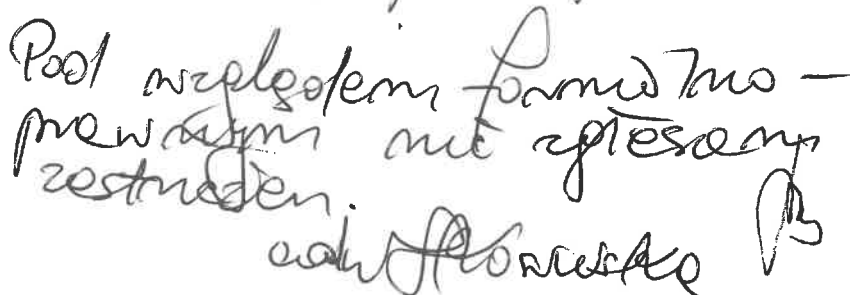 Pod względem formalno-
prawnym nie zgłaszamy
zastrzeżeń.
adw.